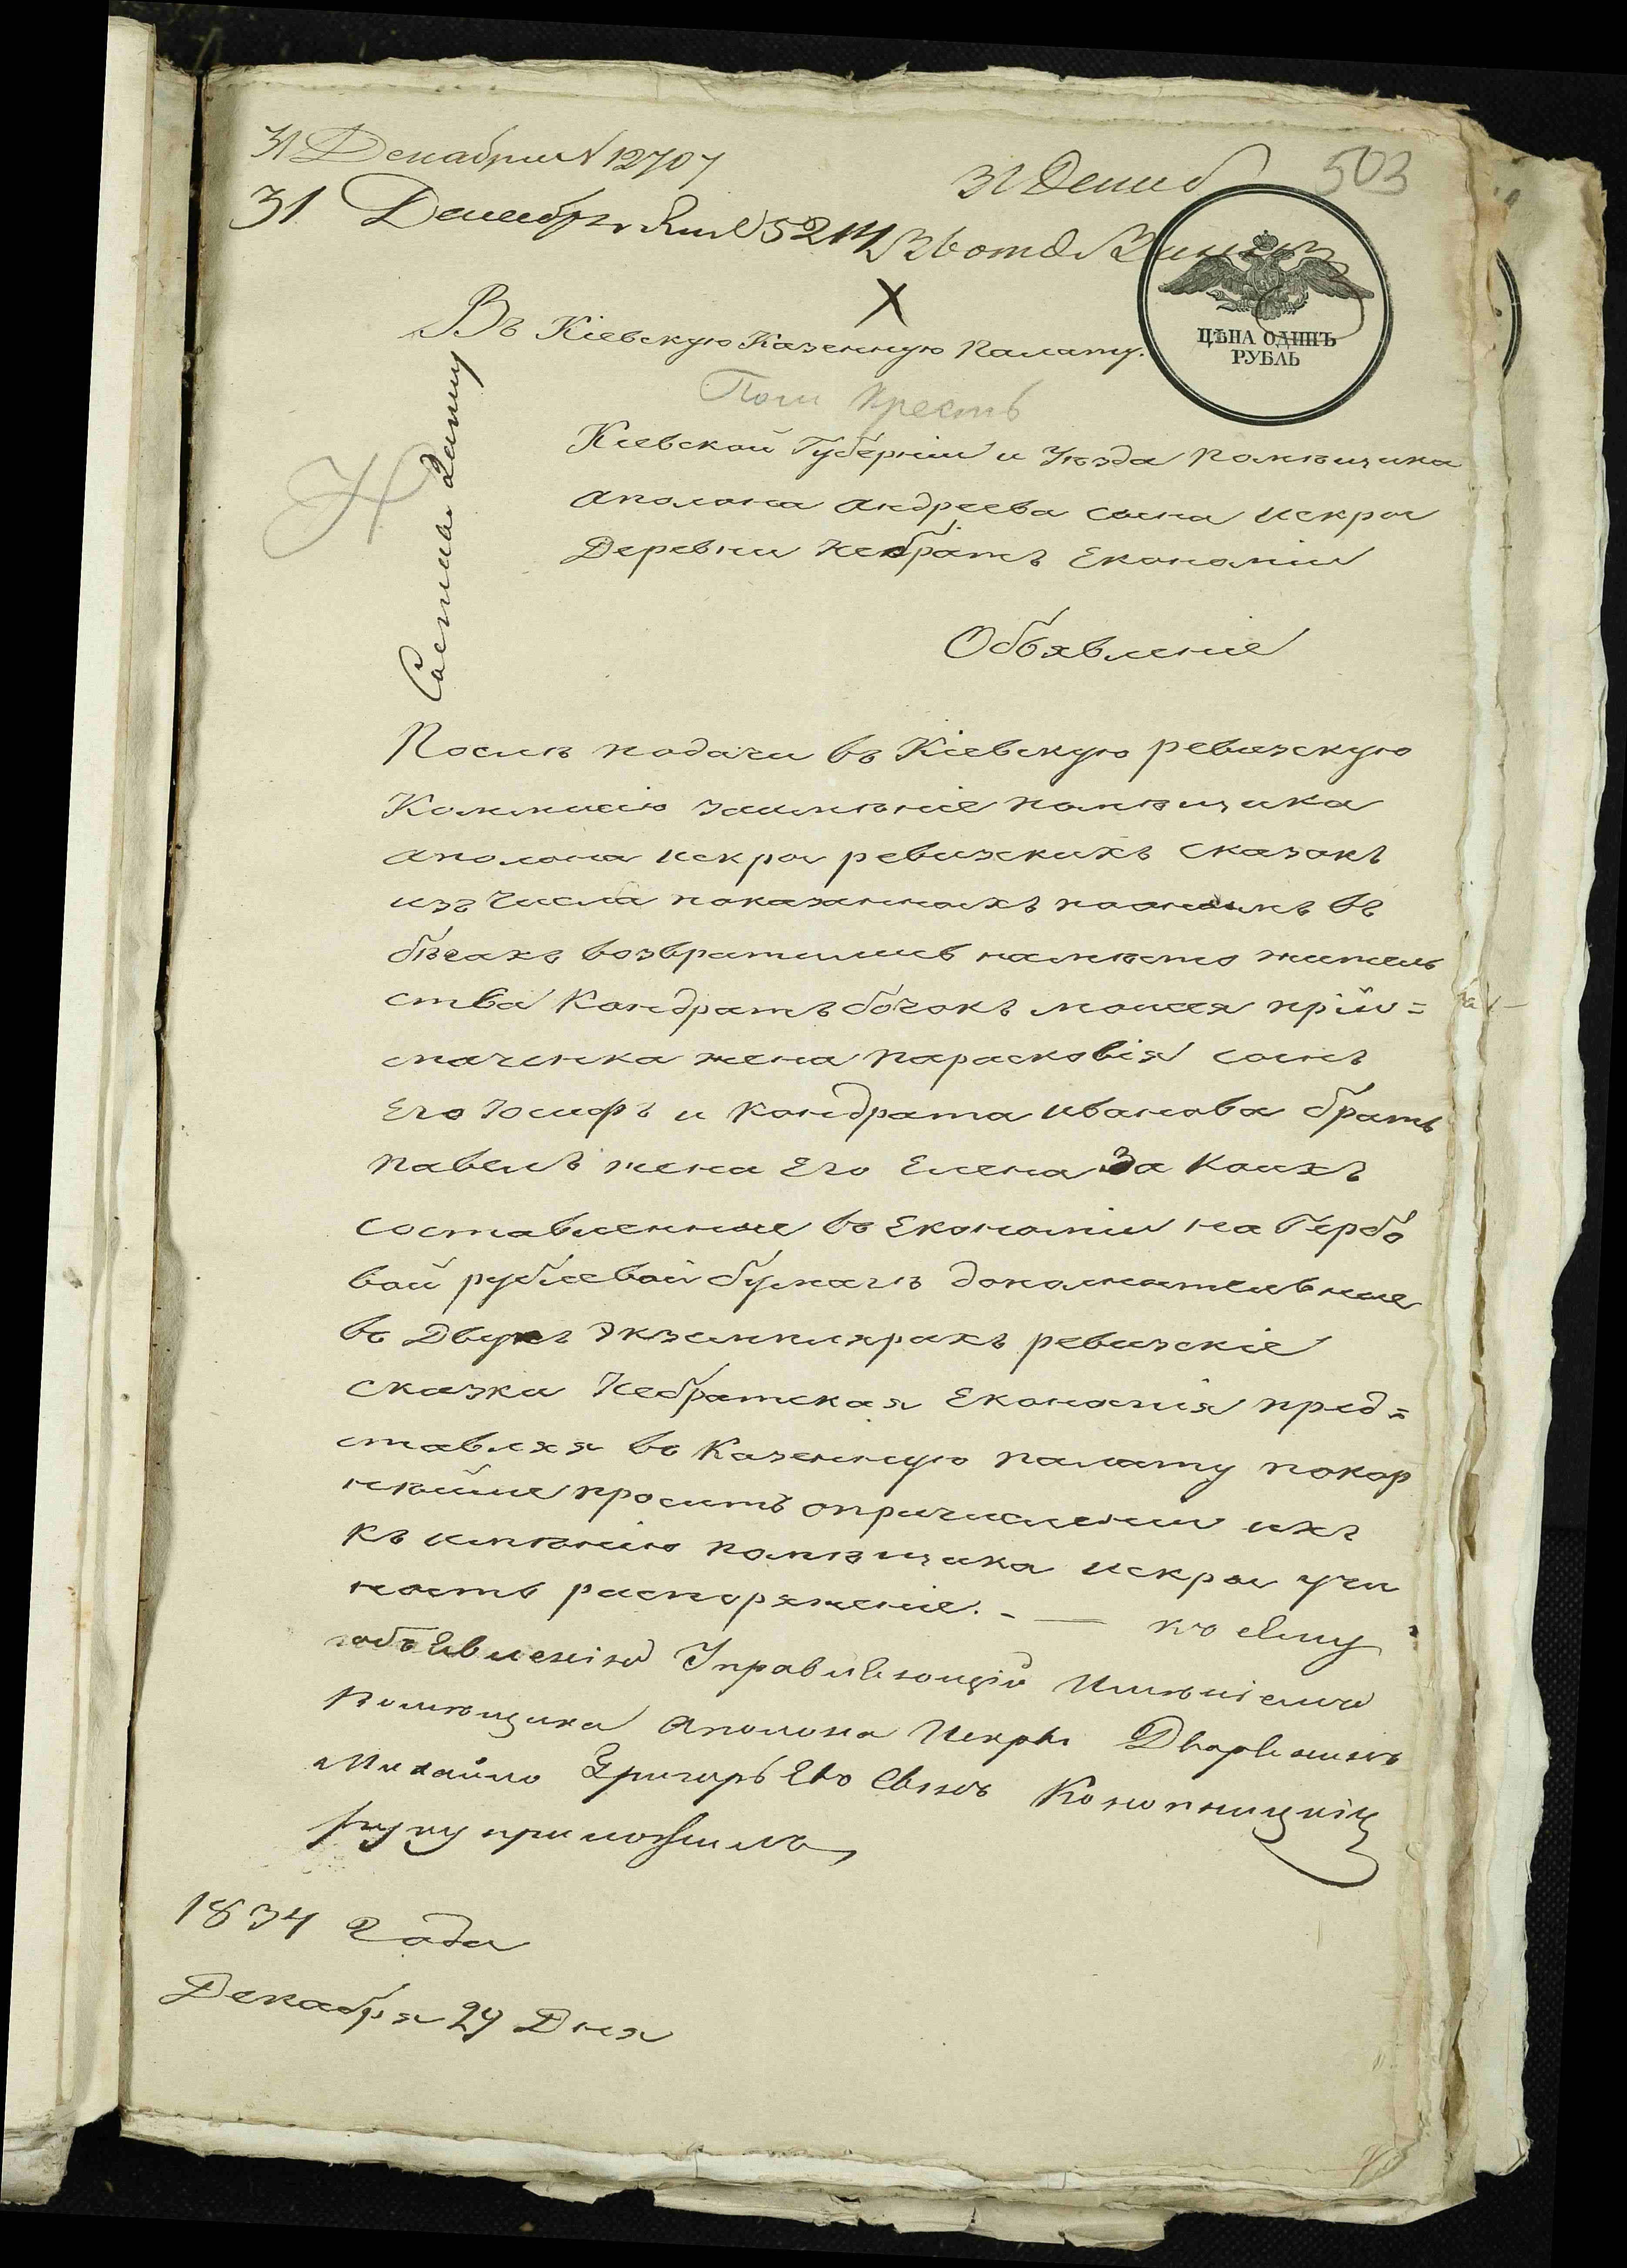 31 Декабря № 12707
31 Декаб
503
31 Декабря
ЦѢНА ОДИНЪ
РУБЛЬ
Въ Кіевскую Казенную Палату.
Пом Крест
Кіевской Губерніи и Уѣзда помѣщика
Аполона Андреева сына Искры
Деревни Небратъ Економіи
Объявленіе
Послѣ подачи въ Кіевскую ревизскую
Коммисію заимѣніе помѣщика
Аполона Искры ревизскихъ сказокъ
изъ числа показанныхъ поонымъ въ
бѣгахъ возвратились намѣсто житель
ства Кондратъ бочокъ моисея прій=
маченка жена Парасковія сынъ
Его Іосифъ и Кондрата Иванова братъ
павелъ жена Его Елена За коихъ
составленные въ Економіи на Гербо
вой рублевой бумагѣ дополнительные
въ Двухъ экземплярахъ ревизскіе
сказки Небратская Економія пред=
ставляя въ Казенную палату покор
нѣйше проситъ опричисленіи ихъ
къ имѣнію помѣщика Искры учи
нить распоряженіе. - — къ сему
объявленію Управляющій Имѣніемъ
Помѣщика Аполона Искры Дворянинъ
Михайло Григорьево Сынъ Конопницкій
руку приложилъ
1834 Года
Декабря 29 Дня